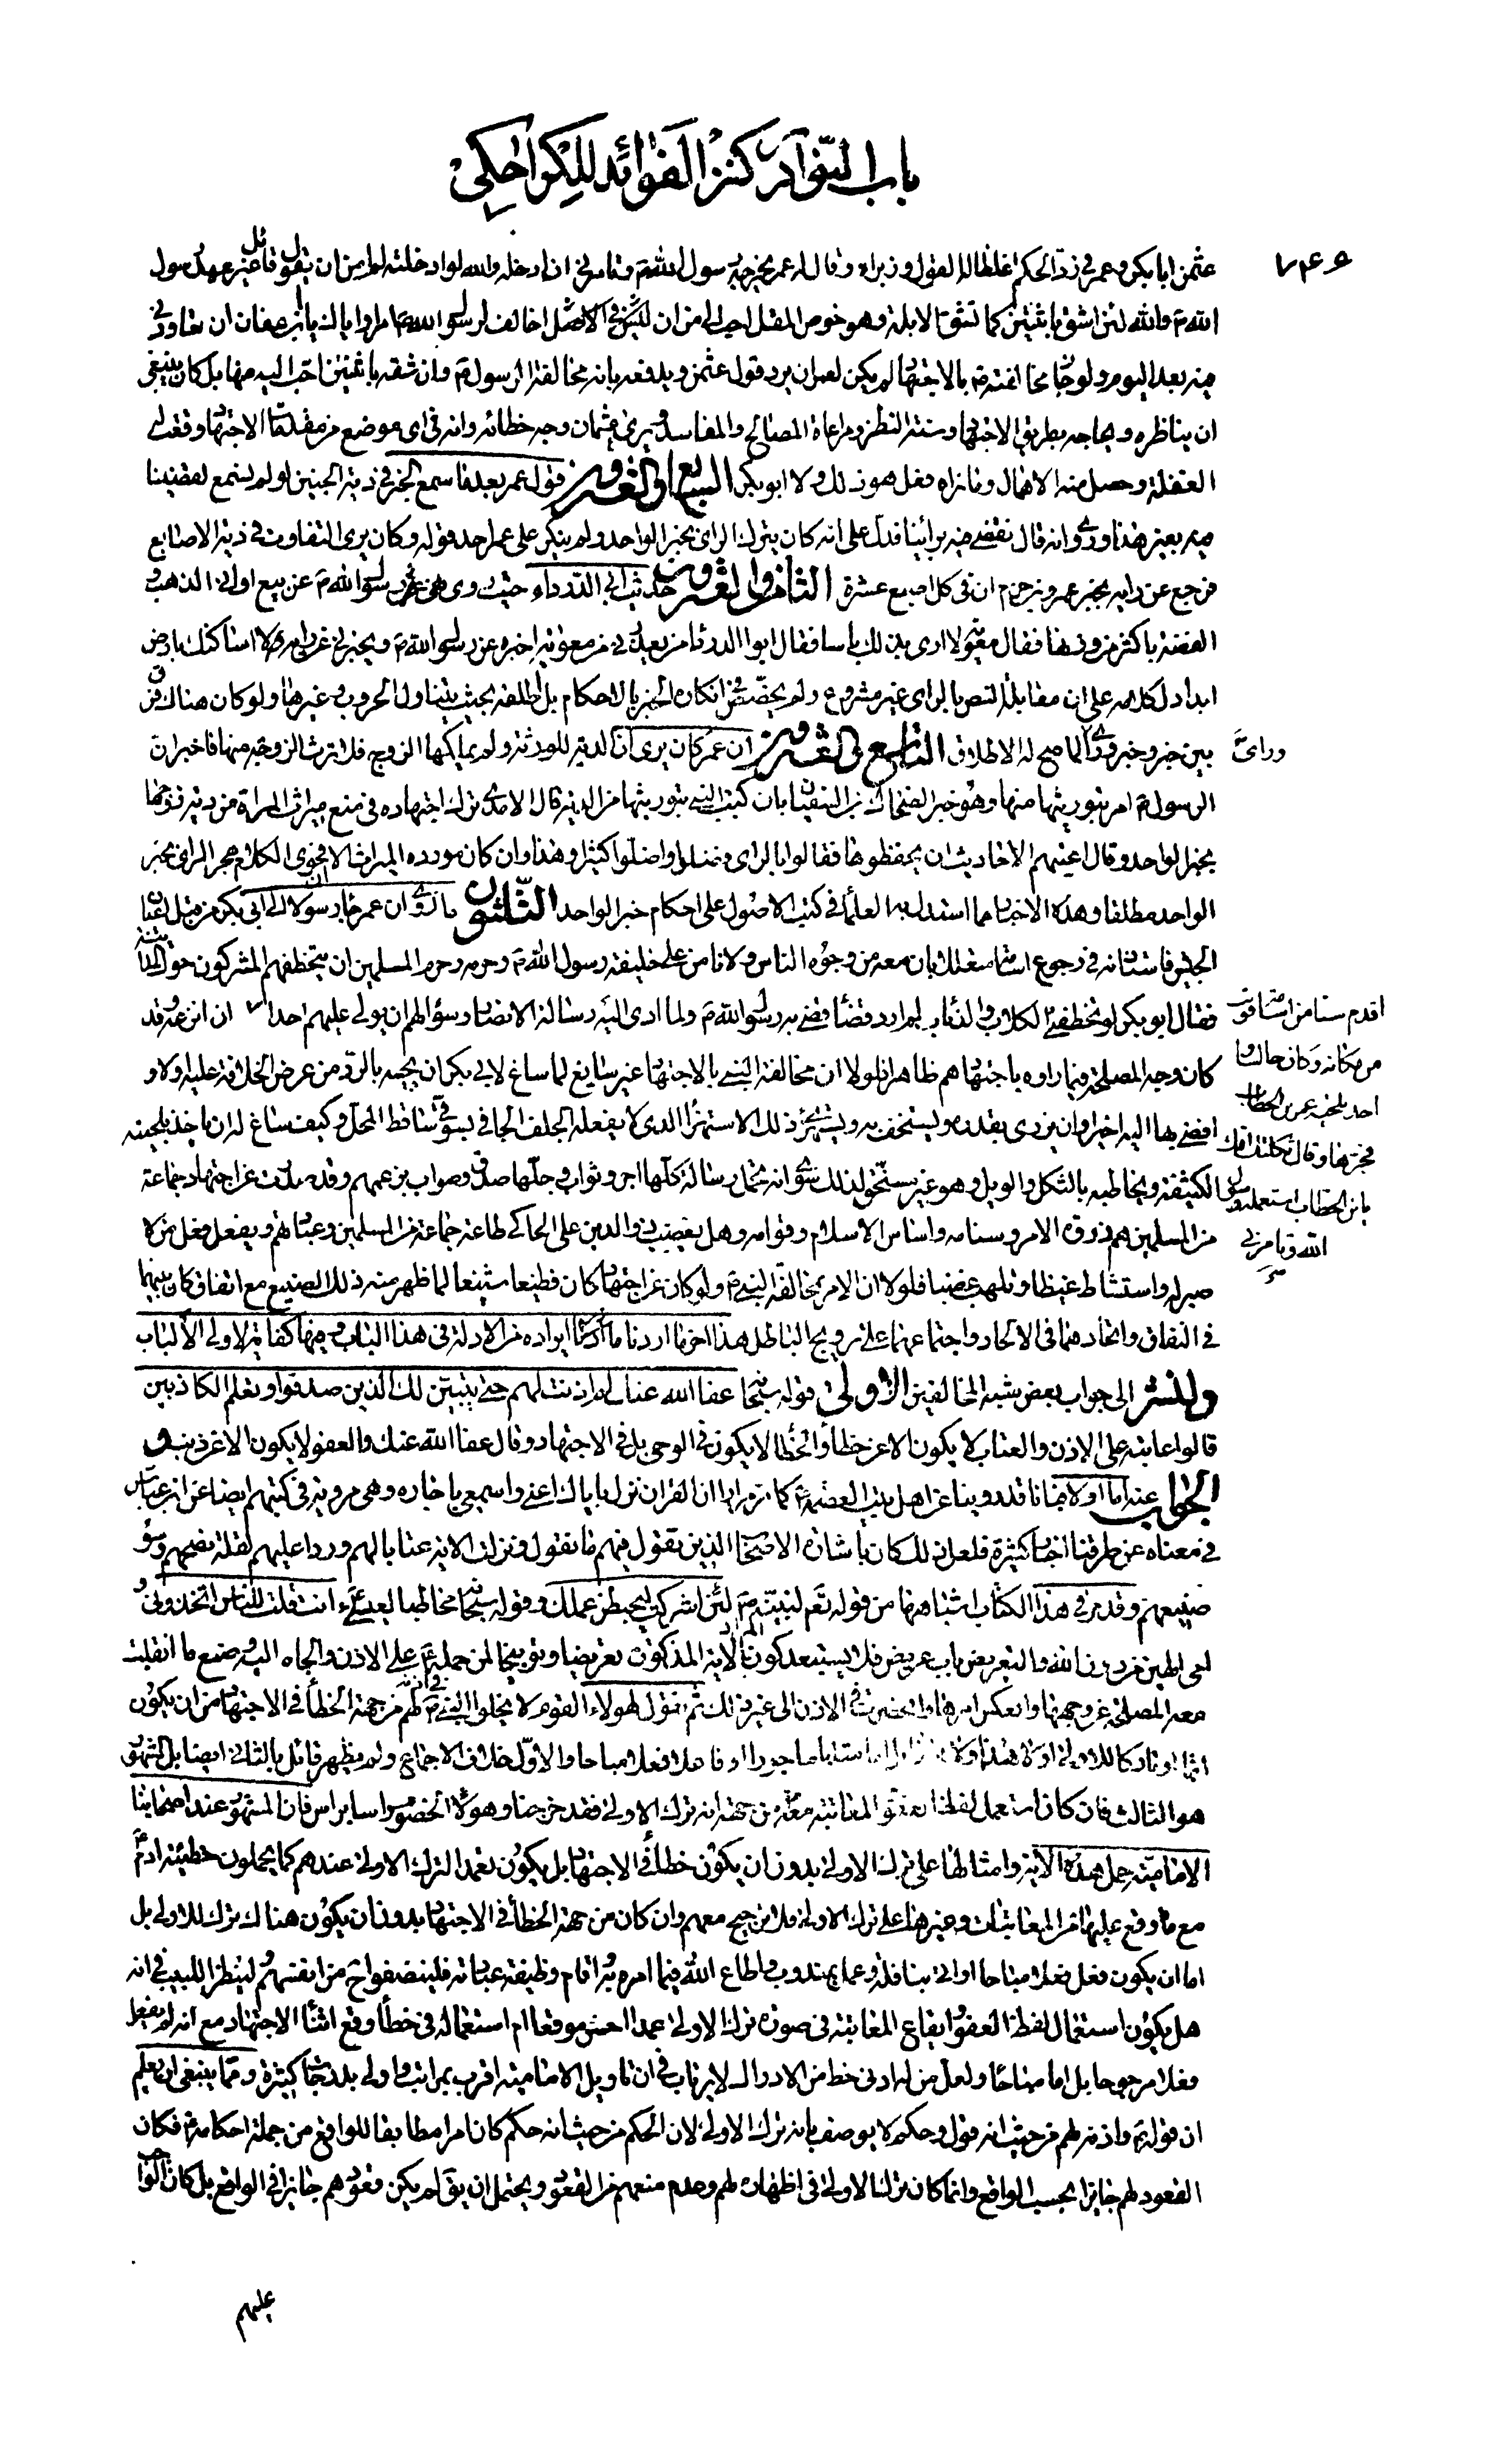 باب النوادر كنز الفوائد للكراجكي
٧٣٤٥
عثمن ابا بكر وعمر في رد الحكم اغلظا له القول وزبراه وقال له عمر يخرجه رسول الله ص وتامرني ان ادخله والله لو ادخلته لم امن ان يقول قائل غير عهد رسول
الله ص والله لئن اشق باثنتين كما تشق الابلمة وهو خوص المقل احب الي من ان اخالف لرسول الله ص امرا واياك يا بن عفان ان تعاودني
فيه بعد اليوم ولو جاز مخالفته ص بالاجتهاد لم يكن لعمر ان يرد قول عثمن ويدفعه بانه مخالفة الرسول ص وان شقه باثنتين احب اليه منها بل كان ينبغي
ان يناظره ويحاجه بطريق الاجتهاد وسنة النظر ومراعاة المصالح والمفاسد ويرى عثمان وجه خطائه وانه في اي موضع من مقدمات الاجتهاد وقعت له
الغفلة وحصل منه الاهمال وما نراه فعل هو ذلك ولا ابو بكر السابع والعشرون قول عمر بعد ما سمع الخبر في دية الجنين لو لم نسمع لقضينا
فيه بغير هذا وروى انه قال نقضي فيه برأينا فدل على انه كان يترك الراى بخبر الواحد ولم ينكر على عمر احد قوله وكان يرى التفاوت في دية الاصابع
فرجع عن رايه بخبر عمرو بن حزم ان في كل اصبع عشرة الثامن والعشرون حديث ابي الدرداء حيث روى نهي رسول الله ص عن بيع اواني الذهب و
الفضة باكثر من وزنها فقال معوية لا ارى بذلك باسا فقال ابو الدرداء من يعذرني من معوية اخبره عن رسول الله ص ويخبرني عن رايه لا اساكنك بارض
ابدا دل كلامه على ان مقابلة النص بالراى غير مشروع ولم يخصص انكاره الخبر بالاحكام بل اطلقه بحيث يتناول الحروب وغيرها ولو كان هناك فرق
بين خبر وخبر وراى لما صح له الاطلاق التاسع والعشرون ان عمر كان يرى ان الدية للورثة ولم يملكها الزوج فلا ترث الزوجة منها فاخبر ان
وراى
الرسول ص امر بتوريثها منها وهو خبر الضحاك بن سفيان بان كتب النبي بتوريثها من الدية قال الامدي ترك اجتهاده في منع ميراث المراة من دية زوجها
بخبر الواحد وقال اعيتهم الاحاديث ان يحفظوها فقالوا بالراى فضلوا واضلوا كثيرا وهذا وان كان مورده الميراث الا فحوى الكلام هجر الراي بخبر
الواحد مطلقا وهذه الاخبار مما استدل به العلماء في كتب الاصول على احكام خبر الواحد الثلثون ما روى ان عمر جاء رسولا الى ابي بكر من قبل
الجيش فاستاذنه في رجوع اسامة معللا بان معه من وجوه الناس ولا نامن على خليفة رسول الله ص وحرمه وحرم المسلمين ان يتخطفهم المشركون حول المدينة
فقال ابو بكر لو تخطفتني الكلاب والذئاب لم ارد قضاء قضى به رسول الله ص ولما ادى اليه رسالة الانصار وسؤالهم ان يولي عليهم احدا ان ابن عمه قد
اقدم سنا من اسامة فوثب
من مكانه وكان جالسا و
اخذ بلحية عمر بن الخطاب
فجرها وقال ثكلتك امك
يا بن الخطاب استعمله رسول
الله وتامرني
كان وجه المصلحة فيما راوه باجتهادهم ظاهرا فلولا ان مخالفة النبي بالاجتهاد غير سايغ لما ساغ لابي بكر ان يجبهه بالرد من عرض الخلافة عليه اولا و
افضى بها اليه اخيرا وان يزري بقدره ويستخف به ذلك الاستهزاء الذي لا يفعله الجلف الجافي بسوقي ساقط المحل وكيف ساغ له ان ياخذ بلحيته
الكثيفة ويخاطبه بالثكل والويل وهو غير مستحق لذلك سوى انه تحمل رسالة كلها اجر وثواب وجلها صدق وصواب بزعمهم وقد صدرت عن اجتهاد جماعة
من المسلمين هم ذروة الامر وسنامه واساس الاسلام وقوامه وهل يغضب ذو الدين على الحاكي طاعة جماعة من المسلمين وعبادتهم ويفعل فعل من لا
صبر له واستشاط غيظا وتلهب غضبا فلولا ان الامر بمخالفة النبي ص ولو كان عن اجتهاد كان فظيعا شنيعا لما ظهر منه ذلك الصنيع مع اتفاق كان بينهما
في النفاق واتحادهما في الالحاد واجتماعهما على ترويج الباطل هذا اخر ما اردنا ايراده من الادلة في هذا الباب وفيها كفاية لاولي الالباب
ولنشر الى جواب بعض شبه المخالفين الاولى قوله سبحانه عفا الله عنك لم اذنت لهم حتى يتبين لك الذين صدقوا وتعلم الكاذبين
قالوا عاتبه على الاذن والعتاب لا يكون الا عن خطأ والخطأ لا يكون في الوحي بل في الاجتهاد وقال عفا الله عنك والعفو لا يكون الا عن ذنب و
الجواب عنه اما اولا فبانا قد روينا عن اهل بيت العصمة ع كما مر مرارا ان القران نزل باياك اعني واسمعي يا جاره وهي مروية في كتبهم ايضا عن ابن عباس
في معناه عن طرقنا اخبار كثيرة فلعل ذلك كان بشان الاصحاب الذين نقول فيهم ما نقول ونزلت الاية عتابا لهم وردا عليهم لقلة نصحهم وسوء
صنيعهم وقد مر في هذا الكتاب اشباهها من قوله تعالى لنبيه ص لئن اشركت ليحبطن عملك وقوله سبحانه مخاطبا لعيسى ء انت قلت للناس اتخذوني و
امي الهين من دون الله والتعريض باب عريض فلا يستبعد كون الاية المذكورة تعريضا وتوبيخا لمن حمله ع على الاذن والجاه اليه وصنع ما انقلبت
معه المصلحة عن وجهها وانعكس امرها الى غير ذلك ثم نقول لهولاء القوم لا يخلو النبي ص في اذنه لهم من جهة الخطأ في الاجتهاد من ان يكون
اثما او تاركا للاولى او لا هذا ولا فعلا مباحا والاول خلاف الاجماع ولم يظهر قائل بالثاني ايضا بل المشهور
هو الثالث فان كان استعمل لفظ العفو المعاتبة معه من جهة انه ترك الاولى فقد خرجنا وهؤلاء الخصوم راسا براس فان المشهور عند اصحابنا
الامامية حمل هذه الاية وامثالها على ترك الاولى بدون ان يكون خطأ في الاجتهاد بل يكون تعمد الترك الاولى عندهم كما يحملون خطيئة ادم
مع ما وقع عليها من المعاتبات وغيرها على ترك الاولى فلا ترجيح معهم وان كان من جهة الخطأ في الاجتهاد بدون ان يكون هناك ترك للاولى بل
اما ان يكون فعل فعلا مباحا او اتى بنافلة وعمل بمندوب واطاع الله فيما امره به واقام وظيفة عبادته فلينصفوا من انفسهم ولينظر اللبيب في انه
هل يكون استعمال لفظ العفو وايقاع المعاتبة في صورة ترك الاولى عمدا احسن موقعا ام استعماله في خطأ وقع اثناء الاجتهاد مع انه لم يفعل
فعلا مرجوحا بل اما مباحا ولعل من له ادنى حظ من الادراك لا يرتاب في ان تاويل الامامية اقرب بمراتب واولى بدرجات كثيرة ومما ينبغي ان يعلم
ان قوله ص واذنه لهم من حيث انه قول وحكم لا يوصف بانه ترك الاولى لان الحكم من حيث انه حكم كان امرا مطابقا للواقع من جملة احكامه ص فكان
القعود لهم جايزا بحسب الواقع وانما كان ترك الاولى في اظهاره لهم وعدم منعهم من القعود ويحتمل ان يق لم يكن قعودهم جايزا في الواقع بل كان الواجب
عليهم